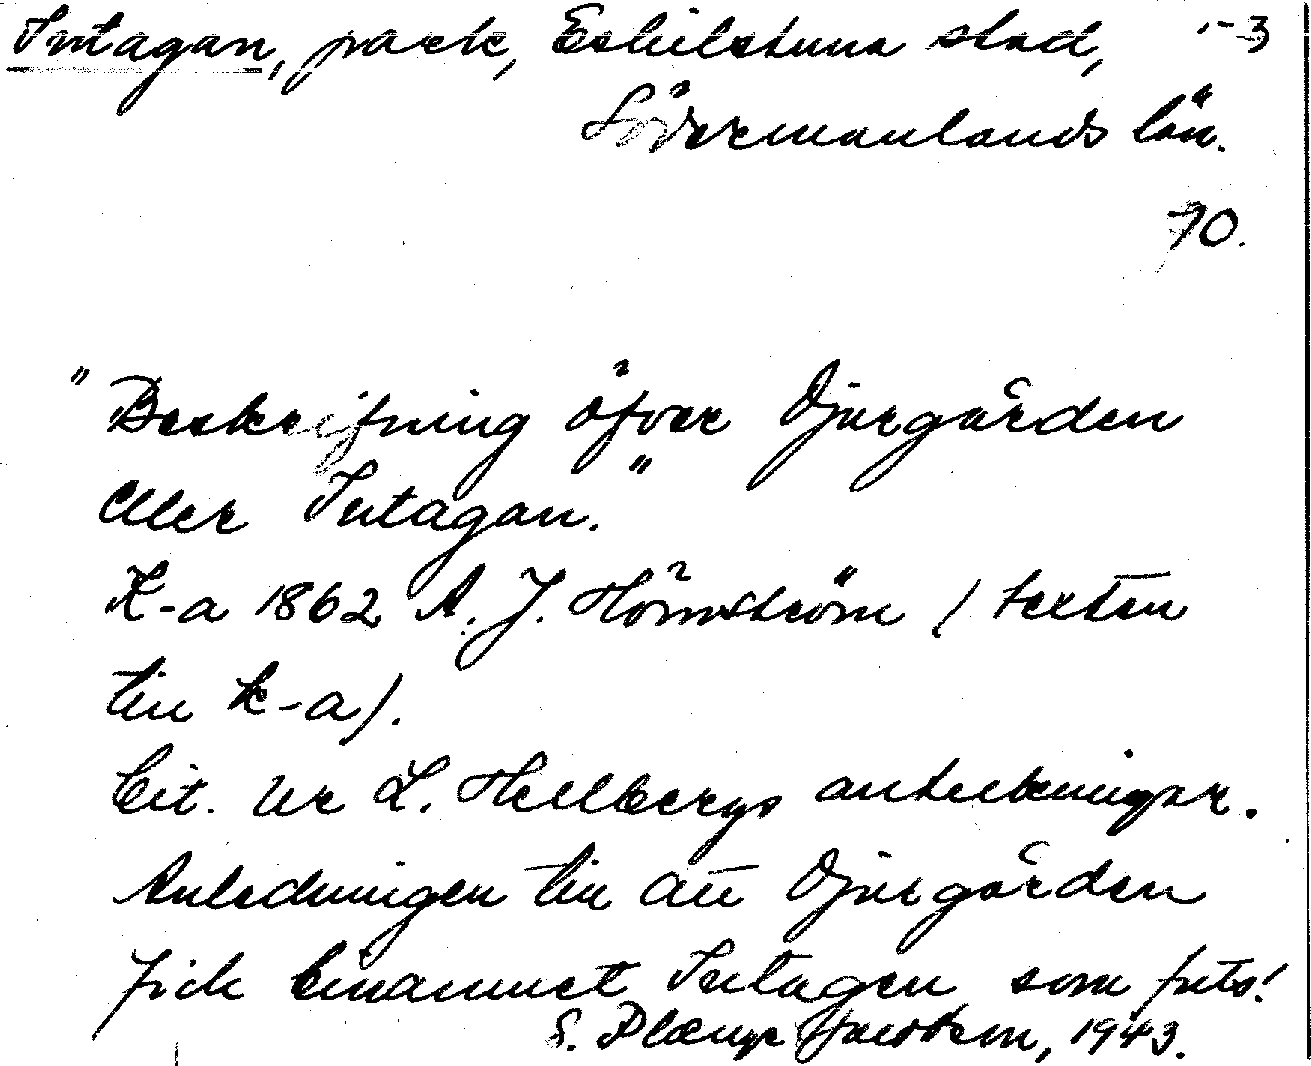 Intagan, park, Eskilstuna stad, 1-3
Södermanlands län.
70.
"Beskrifning öfver Djurgården
eller Intagan."
K-a 1862 A. J. Hörnström (texten
till k-a).
Cit. ur L. Hellbergs anteckningar.
Anledningen till att Djurgården
fick binamnet Intagen som frts!
S. Plænge Jacobson, 1943.